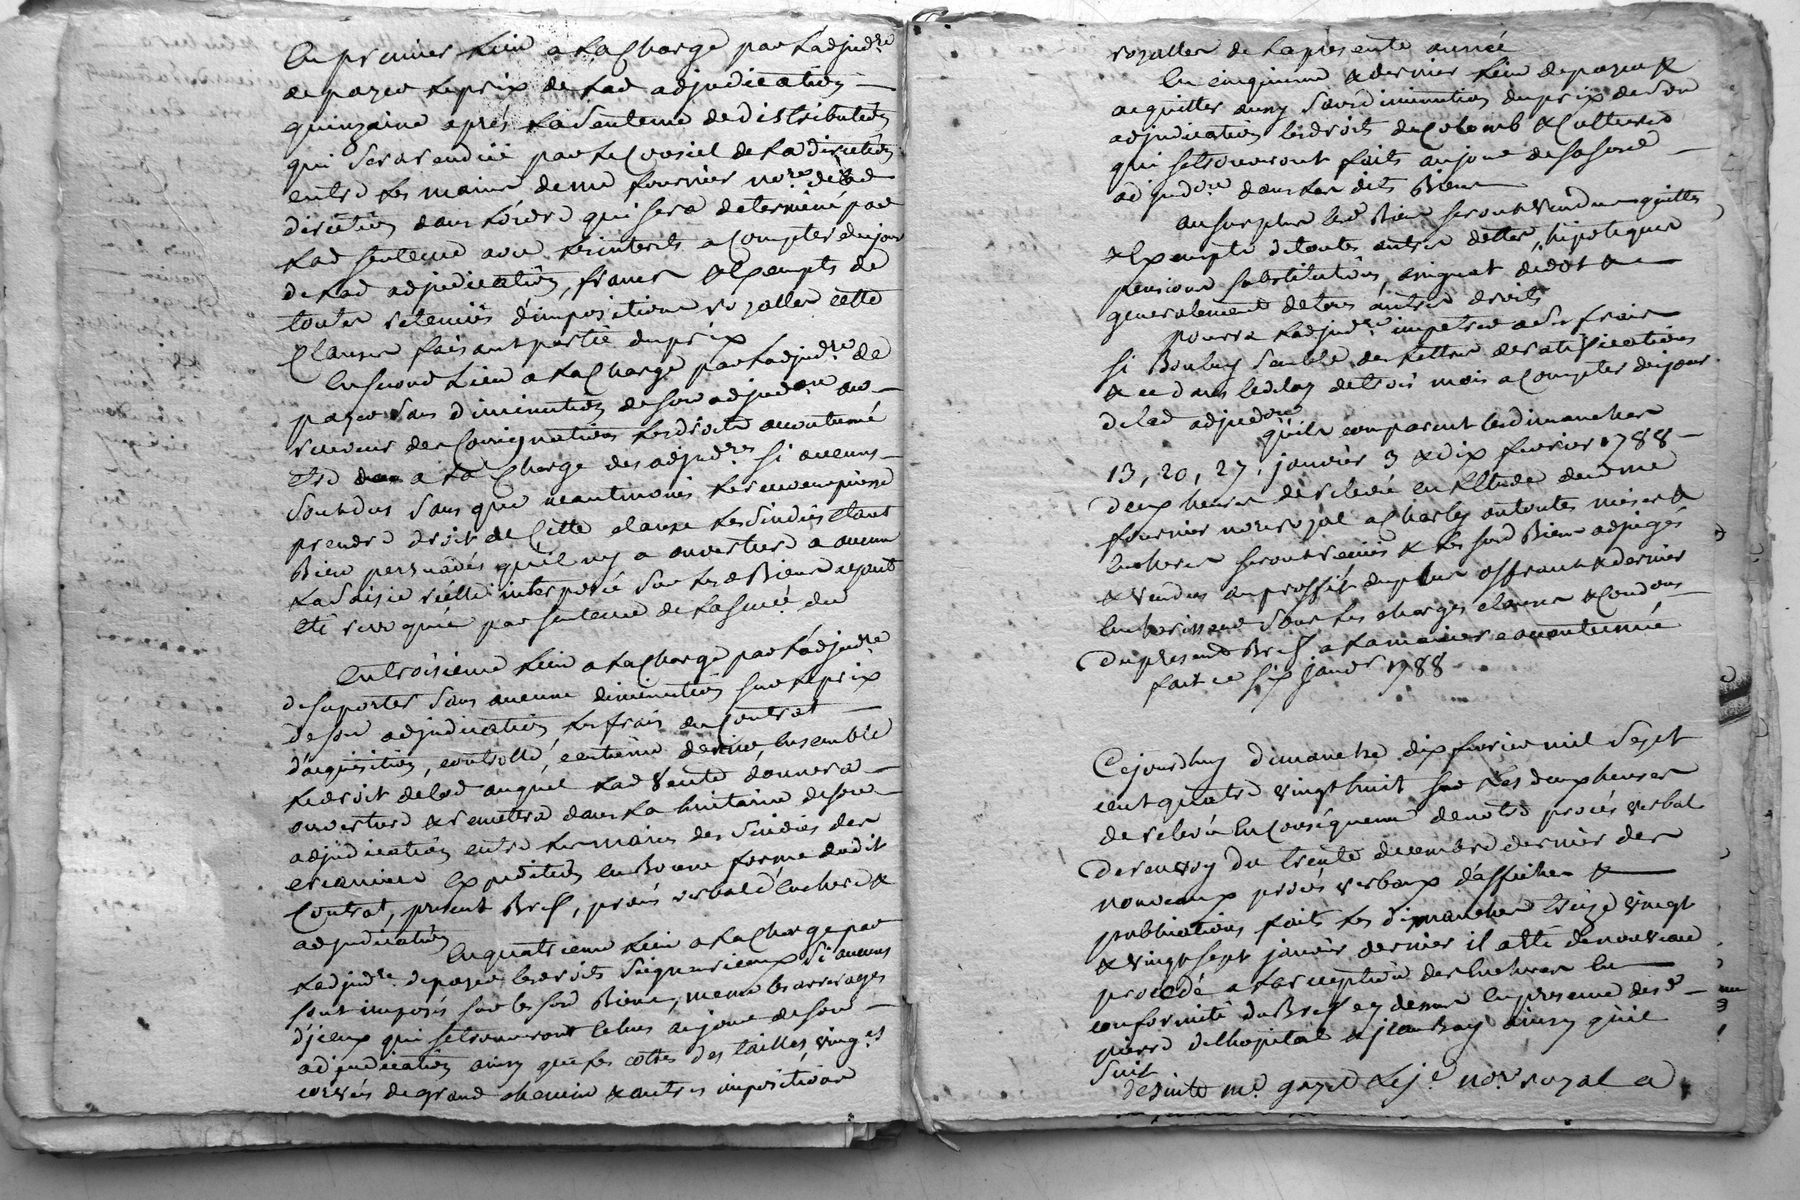 En premier lieu a la Charge par Ladjudre
de payer le prix de Lad adjudication
quinzaine aprés La Sentence de distribution
qui Sera rendüe par le Conseil de La direction
entre les mains de me fournier nore de lad
direction dans L'ordre qui sera determiné par
Lad Sentence avec les interets a Compter du jour
de Lad adjudication, francs & Exempts de
toutes retenües d'impositions royalles cette
Clause faisant partie du prix
En Second Lieu a la Charge par Ladjudre de
payer Sans diminution de son adjudon au
receveur des Consignations les droits accoutumé
etre a la Charge des adjudres Si aucuns
Sont dus Sans que neantmoins le receveur puisse
prendre droit de Cette clause les Sindics étant
Bien persuadés qu'il ny a ouverture a aucun
La Saisie réélle interposée Sur les d Biens ayant
été revoquée par Sentence de La Senée du
En troisieme Lieu a la Charge par Ladjudre
de suporter Sans aucune diminution Sur le prix
de son adjudication, les frais du Contrat
d'aquisition, controlle, centieme denier, Ensemble
le droit de led auquel Lad Vente donnera
ouverture & remettra dans La huitaine de son
adjudication entre les mains des Sindics des
creanciers Expedition en Bonne forme dudit
Contrat, present Bref, procés verbal d'Enchere &
adjudication
En quatrieme Lieu a la Charge par
Ladjudre de payer les droits Seigneuriaux Si aucuns
sont imposés sur les susd Biens, meme les arrerages
d'iceux qui se trouveront Echus au jour de son
adjudication ainsy que les cottes des tailles, vinges
corvées de grand chemin & autres impositions
royalles de La presente année
En cinquieme & dernier Lieu de payer &
acquitter aussy Sans diminution du prix de Son
adjudication les droits de Colomb & Cultures
qui se trouveront faits au jour de sa Sence
adjudon dans les dits Biens
au surplus lesd Biens seront vendus quittes
& Exempts de toutes autres dettes, hipoteques
pensions substitutions, assignat de dot &
generalement de tous autres droits
pourra Ladjudre impetrer a ses frais
si Bon luy Semble des Lettres de ratiffications
& ce dans le delay de trois mois a Compter du jour
de lad adjudon
qu'ils comparent les dimanches
13, 20, 27, janvier 3 & dix fevrier 1788
deux heures de relevée en L'Etude dud me
fournier nore royal a Charly ou toutes mises &
Encheres seront recues & les susd Biens adjugés
& vendus au proffit du plus offrant & dernier
Encherisseur Sous les charges clauses & Condons
du present Bref a la maniere accoutumée
fait ce six Janvr 1788
Cejourdhuy dimanche dix fevrier mil Sept
cent quatre vingt huit Sur les deux heures
de relevée En Conséquence de notre procés verbal
de renvoy du trente decembre dernier des
nouveaux procés verbaux d'affiches &
publications faits les dimanches treize vingt
& vingt sept janvier dernier il a été de nouveau
procédé a la reception des Encheres en
conformité du Bref cy dessus En presence des Srs
pierre delhopital & jean Bay ainsy qu'il
Suit
desuite me gayet le je nore royal a